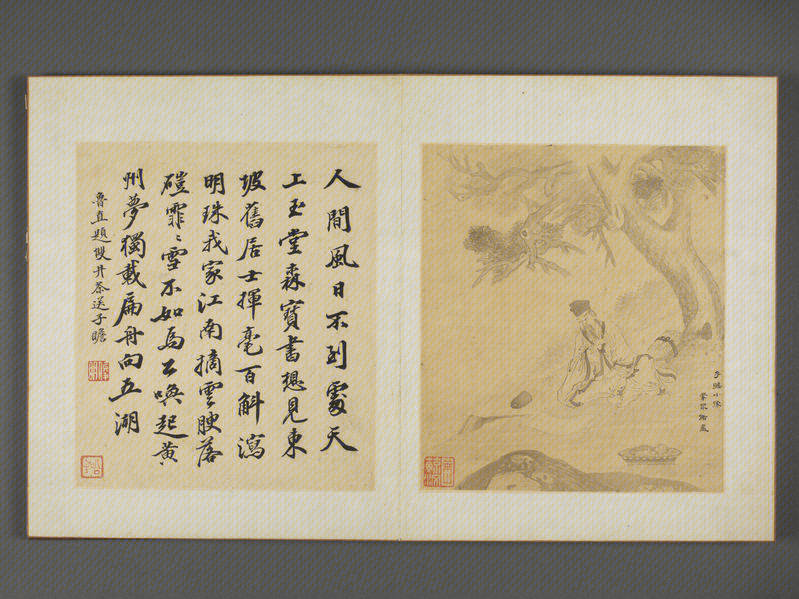 子瞻小像
人間風日不到處天
上玉堂森寶書想見東
坡舊居士揮毫百斛瀉
明珠我家江南摘雲腴落
磑霏〻雪不如為公喚起黃
州夢獨載扁舟向五湖
魯直題雙井茶送子瞻